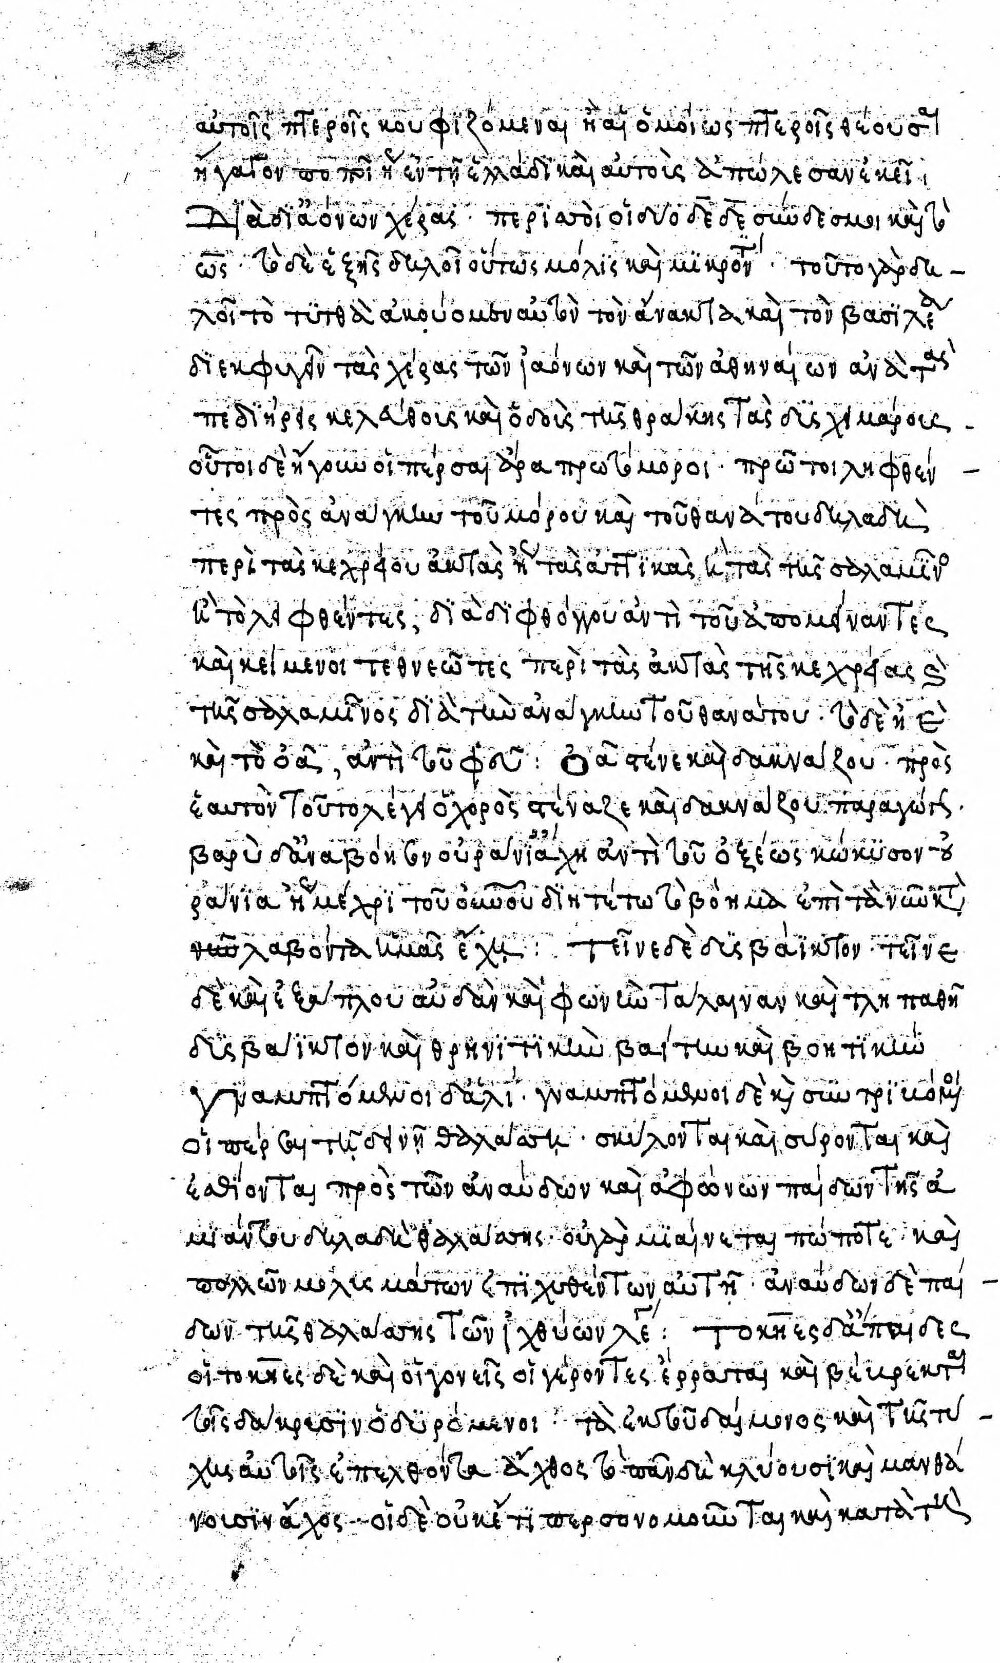 αὐτοῖς πτεροῖς κουφιζόμεναι ἢ αἱ ὁμοίως πτεροῖς θέουσαι
ἤγαγον ποτὲ ἐν τῇ ἑλλάδι καὶ αὐτοὺς ἀπώλεσαν ἐκεῖ.
Διὰ δ' ἰαόνων χέρας · περιττοὶ οἱ δύο δὲ δὲ σύνδεσμοι καὶ τὸ
ὣς · τὸ δὲ ἑξῆς δηλοῖ οὕτως μόλις καὶ μικρόν · τοῦτο γὰρ δη-
λοῖ τὸ τυτθὰ ἀκούομεν αὐτὸν τὸν ἄνακτα καὶ τὸν βασιλέα
διεκφυγεῖν τὰς χέρας τῶν ἰαόνων καὶ τῶν ἀθηναίων ἀνὰ τὰς
πεδιήρεις κελεύθους καὶ ὁδοὺς τῆς θράκης τὰς δυσχειμέρους -
οὗτοι δὲ ἤγουν οἱ πέρσαι ἄρα πρωτόμοροι · πρῶτοι ληφθέν-
τες πρὸς ἀνάγκην τοῦ μόρου καὶ τοῦ θανάτου δηλαδὴ
περὶ τὰς κυχρείου ἀκτὰς ἢ τὰς ἀττικὰς ἢ τὰς τῆς σαλαμῖνος
ἢ τὸ λειφθέντες, διὰ διφθόγγου ἀντὶ τοῦ ἀπομείναντες
καὶ κείμενοι τεθνεῶτες περὶ τὰς ἀκτὰς τῆς κυχρείας
τῆς σαλαμῖνος διὰ τὴν ἀνάγκην τοῦ θανάτου · τὸ δὲ ἠὲ
καὶ τὸ ὀᾶ, ἀντὶ τοῦ φεῦ: Ὀᾶ στένε καὶ δακνάζου · πρὸς
ἑαυτὸν τοῦτο λέγει ὁ χορὸς στέναζε καὶ δακνάζου παραγώγως.
βαρὺ δ' ἀναβόησον οὐράνι' ἄχη ἀντὶ τοῦ ὀξέως κώκυσον οὐ
ράνια ἢ μέχρι τοῦ οὐρανοῦ τὸ βόημα ἐπὶ τὰ
λαβόντα ἡμᾶς ἄχη: Τεῖνε δὲ δυσβάϋκτον · τεῖνε
δὲ καὶ ἐξάπλου αὐδὰν καὶ φωνὴν τάλαιναν καὶ τληπαθῆ
δυσβάϋκτον καὶ θρηνητικὴν καὶ βοητικὴν
Γναμπτόμενοι δ' ἁλί · γναμπτόμενοι δὲ καὶ συντριβόμενοι
οἱ πέρσαι τῇ δεινῇ θαλάσσῃ · σκύλονται καὶ σύρονται καὶ
ἐσθίονται πρὸς τῶν ἀναύδων καὶ ἀφώνων παίδων τῆς ἀ
μιάντου δηλαδὴ θαλάσσης · οὐ γὰρ μιαίνεται πώποτε · καὶ
πολλῶν μολυσμάτων ἐπιχυθέντων αὐτῇ · ἀναύδων δὲ παί-
δων τῆς θαλάσσης τῶν ἰχθύων λέγει: Τοκῆες δ' ἄπαιδες
οἱ τοκῆες δὲ καὶ οἱ γονεῖς οἱ γέροντες ἔρρανται καὶ βέβρεκται
τοῖς δάκρυσιν ὀδυρόμενοι · τὰ ἐκ τοῦ δαίμονος καὶ τῆς τύ-
χης αὐτοῖς ἐπελθόντα ἄχθος τὸ πᾶν δὴ κλύουσι καὶ μανθά
νουσιν ἄλγος · οἱ δὲ οὐκέτι περσονομοῦνται καὶ κατὰ τοὺς